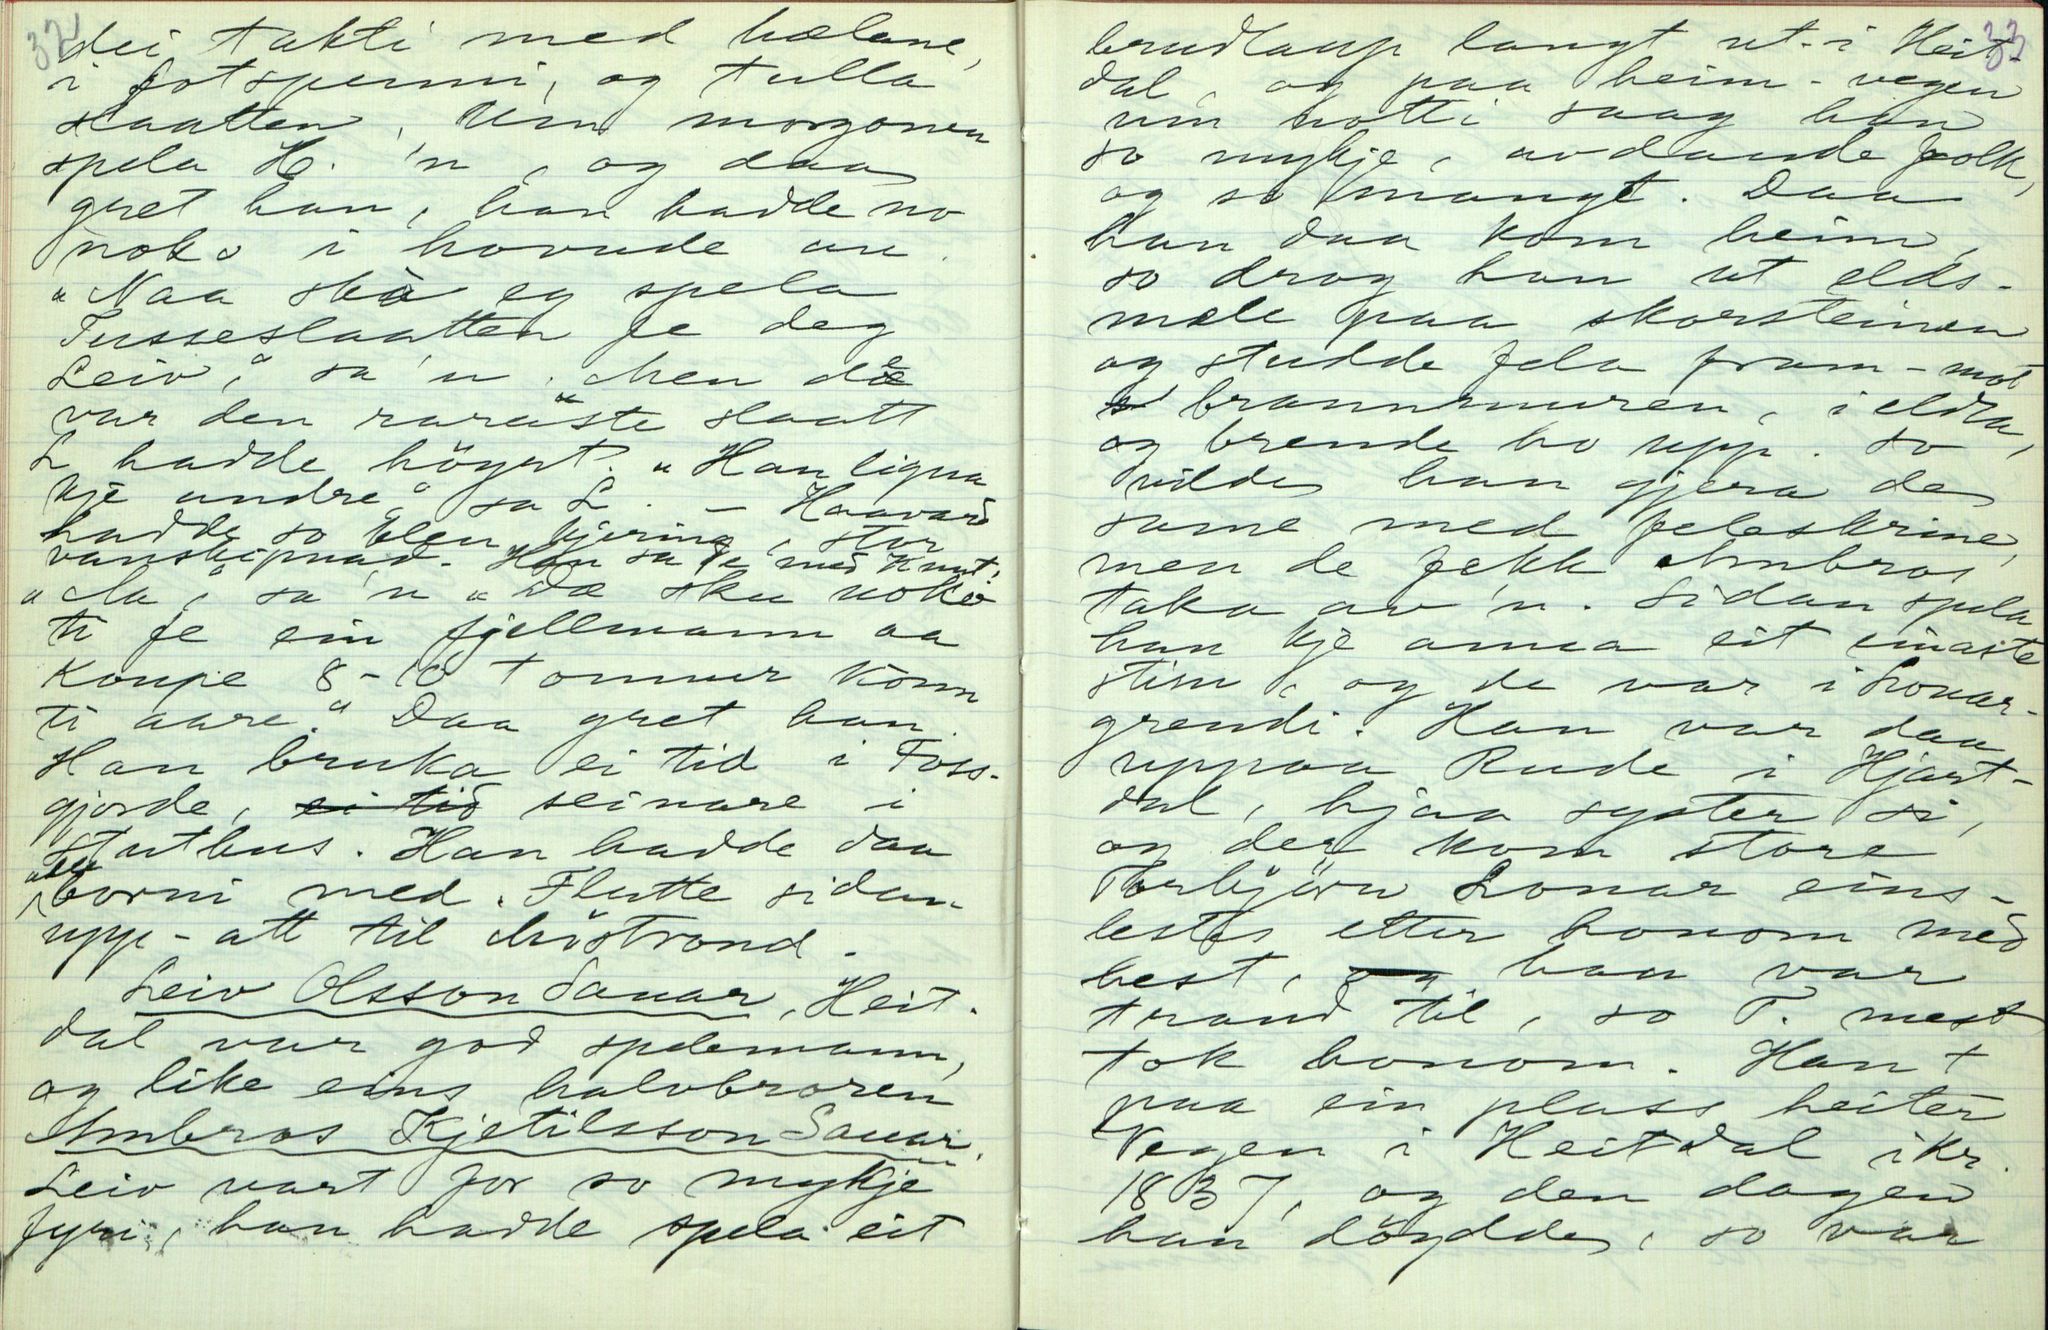 32
dei takti med hælane,
i fotspenni, og tulla
slaatten. Um morgonen
spela H. 'n, og daa
gret han, han hadde no
noko i hovude au.
"Naa ska eg spela
Tusseslaatten fe deg
Leiv," sa 'n. Men dæ
var den raraste slaatt
L hadde höyrt. "Han ligna
kje andre" sa L. – Haavard
hadde so klen kjering, stor
vanskipnad. Han sa de med Knut:
"Ja," sa 'n "Dæ sku noko
ti fe ein fjellmann aa
kaupe 8-10 tonner konn
ti aare." Daa gret han.
Han bruka ei tid i Foss-
gjorde, ei tid seinare i
Stuthus. Han hadde daa
alle borni med. Flutte sidan
upp-att til Møstrond.
Leiv Olsson Sauar, Heit-
dal var god spelemann,
og like eins halvbroren
Ambros Kjetilsson Sauar.
Leiv vart for so mykje
fyri, han hadde spela eit
33
brudlaup langt ut-i Heit-
dal, og paa heim-vegen
um notti saag han
so mykje, avdaude folk,
og so mangt. Daa
han daa kom heim,
so drog han ut elds-
mæle paa skorsteinen
og studde fela fram-mot
brannmuren, i elda,
og brende ho upp. So
vilde han gjera de
same med feleskrine,
men de fekk Ambros
taka av 'n. Sidan spela
han kje anna eit einaste
stem, og de var i Sauar-
grendi. Han var daa
uppaa Rude i Hjart-
dal, hjaa syster si,
og der kom store
Torbjörn Sonar eins-
lestes etter honom med
hest, og han var
traud til, so T. mest
tok honom. Han +
paa ein plass heiter
Vegen i Heitdal ikr.
1837, og den dagen
han döydde, so var